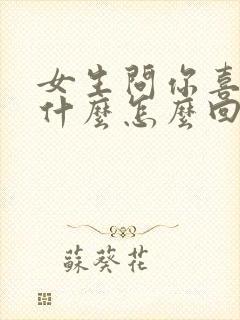 女生問你喜
什麼怎麼回
蘇葵花